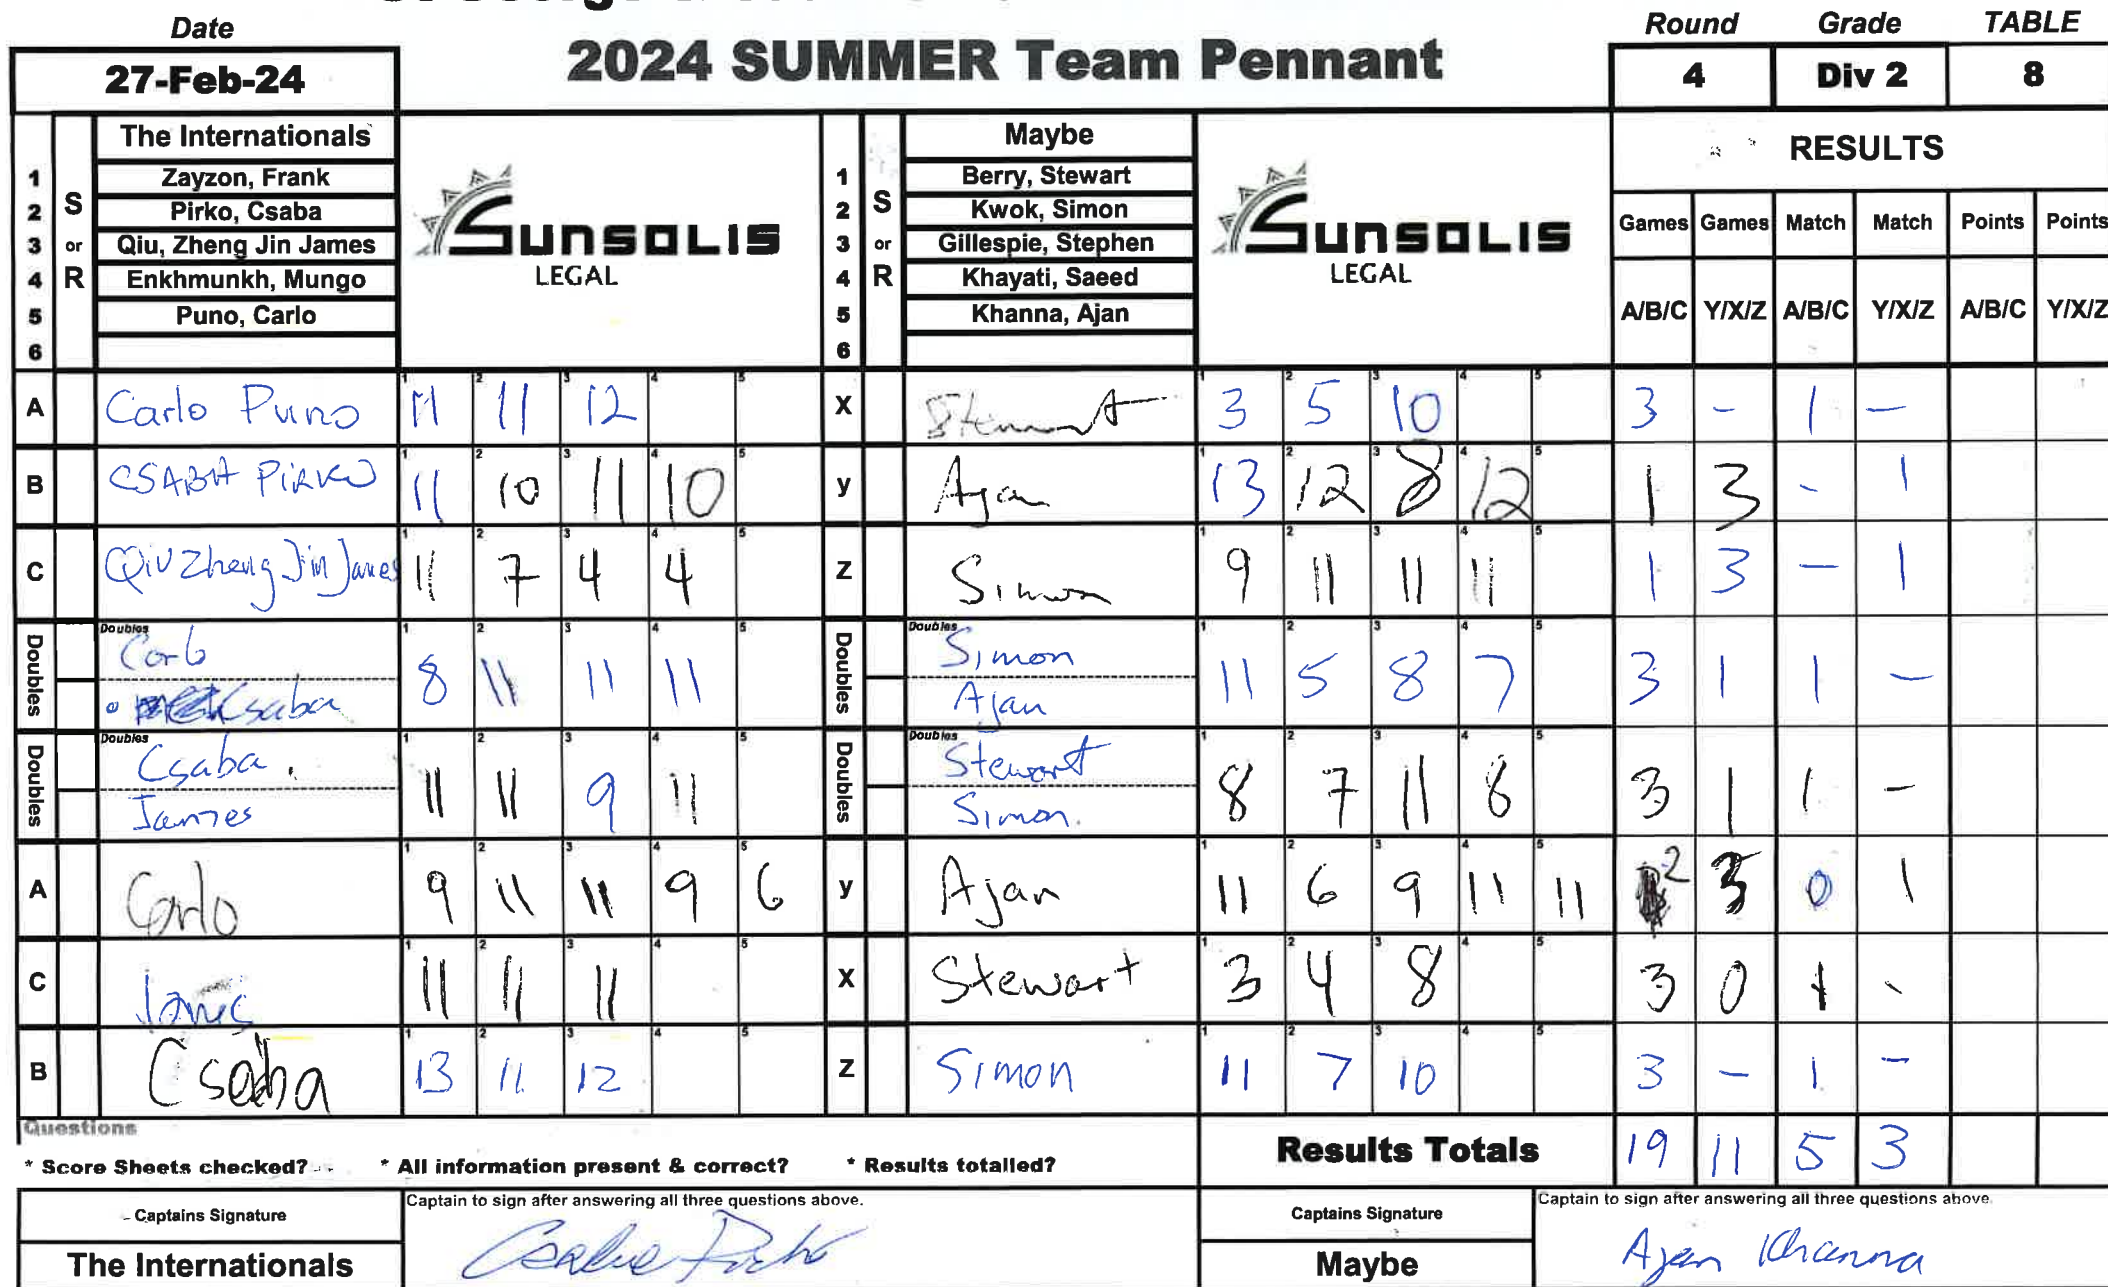 Date
2024 SUMMER Team Pennant
Round Grade TABLE
27-Feb-24
4 Div 2 8
The Internationals
1 Zayzon, Frank
2 Pirko, Csaba
3 Qiu, Zheng Jin James
4 Enkhmunkh, Mungo
5 Puno, Carlo
6
S or R
SUNSOLIS
LEGAL
Maybe
1 Berry, Stewart
2 Kwok, Simon
3 Gillespie, Stephen
4 Khayati, Saeed
5 Khanna, Ajan
6
S or R
SUNSOLIS
LEGAL
RESULTS
Games Games Match Match Points Points
A/B/C Y/X/Z A/B/C Y/X/Z A/B/C Y/X/Z
A Carlo Puno 11 11 12 X Stewart 3 5 10 3 - 1 -
B CSABA PIRKO 11 10 11 10 y Ajan 13 12 8 12 1 3 - 1
C Qiu Zheng Jin James 11 7 4 4 Z Simon 9 11 11 11 1 3 - 1
Doubles Carlo Csaba 8 11 11 11 Doubles Simon Ajan 11 5 8 7 3 1 1 -
Doubles Csaba James 11 11 9 11 Doubles Stewart Simon 8 7 11 8 3 1 1 -
A Carlo 9 11 11 9 6 y Ajan 11 6 9 11 11 2 3 0 1
C James 11 11 11 X Stewart 3 4 8 3 0 1 -
B Csaba 13 11 12 Z Simon 11 7 10 3 - 1 -
Questions
* Score Sheets checked? * All information present & correct? * Results totalled?
Results Totals 19 11 5 3
Captains Signature
Captain to sign after answering all three questions above.
The Internationals
Csaba Pirko
Captains Signature
Captain to sign after answering all three questions above.
Maybe
Ajan Khanna